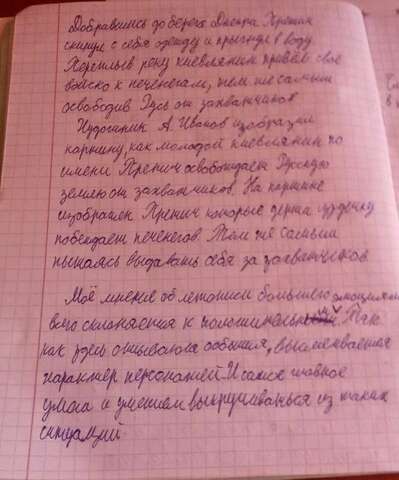 Добравшись до берега Днепра Претич
скинул с себя одежду и прыгнул в воду.
Переплыв реку киевлянин привёл своё
войско к печенегам, тем же самым
освободив Русь от захватчиков
Художник А. Иванов изобразил
картину, как молодой киевлянин по
имени Претич освобождает Русскую
землю от захватчиков. На картине
изображен Претич которые держа уздечку
побеждает печенегов. Тем же самым
пытаясь выдавать себя за захватчиков
Моё мнение об летописи большего эмоциями
всего склоняется к положительн Так
как здесь описываются события,
характер персонажей. И самое главное
умом и умением выкручиваться из таких
ситуаций